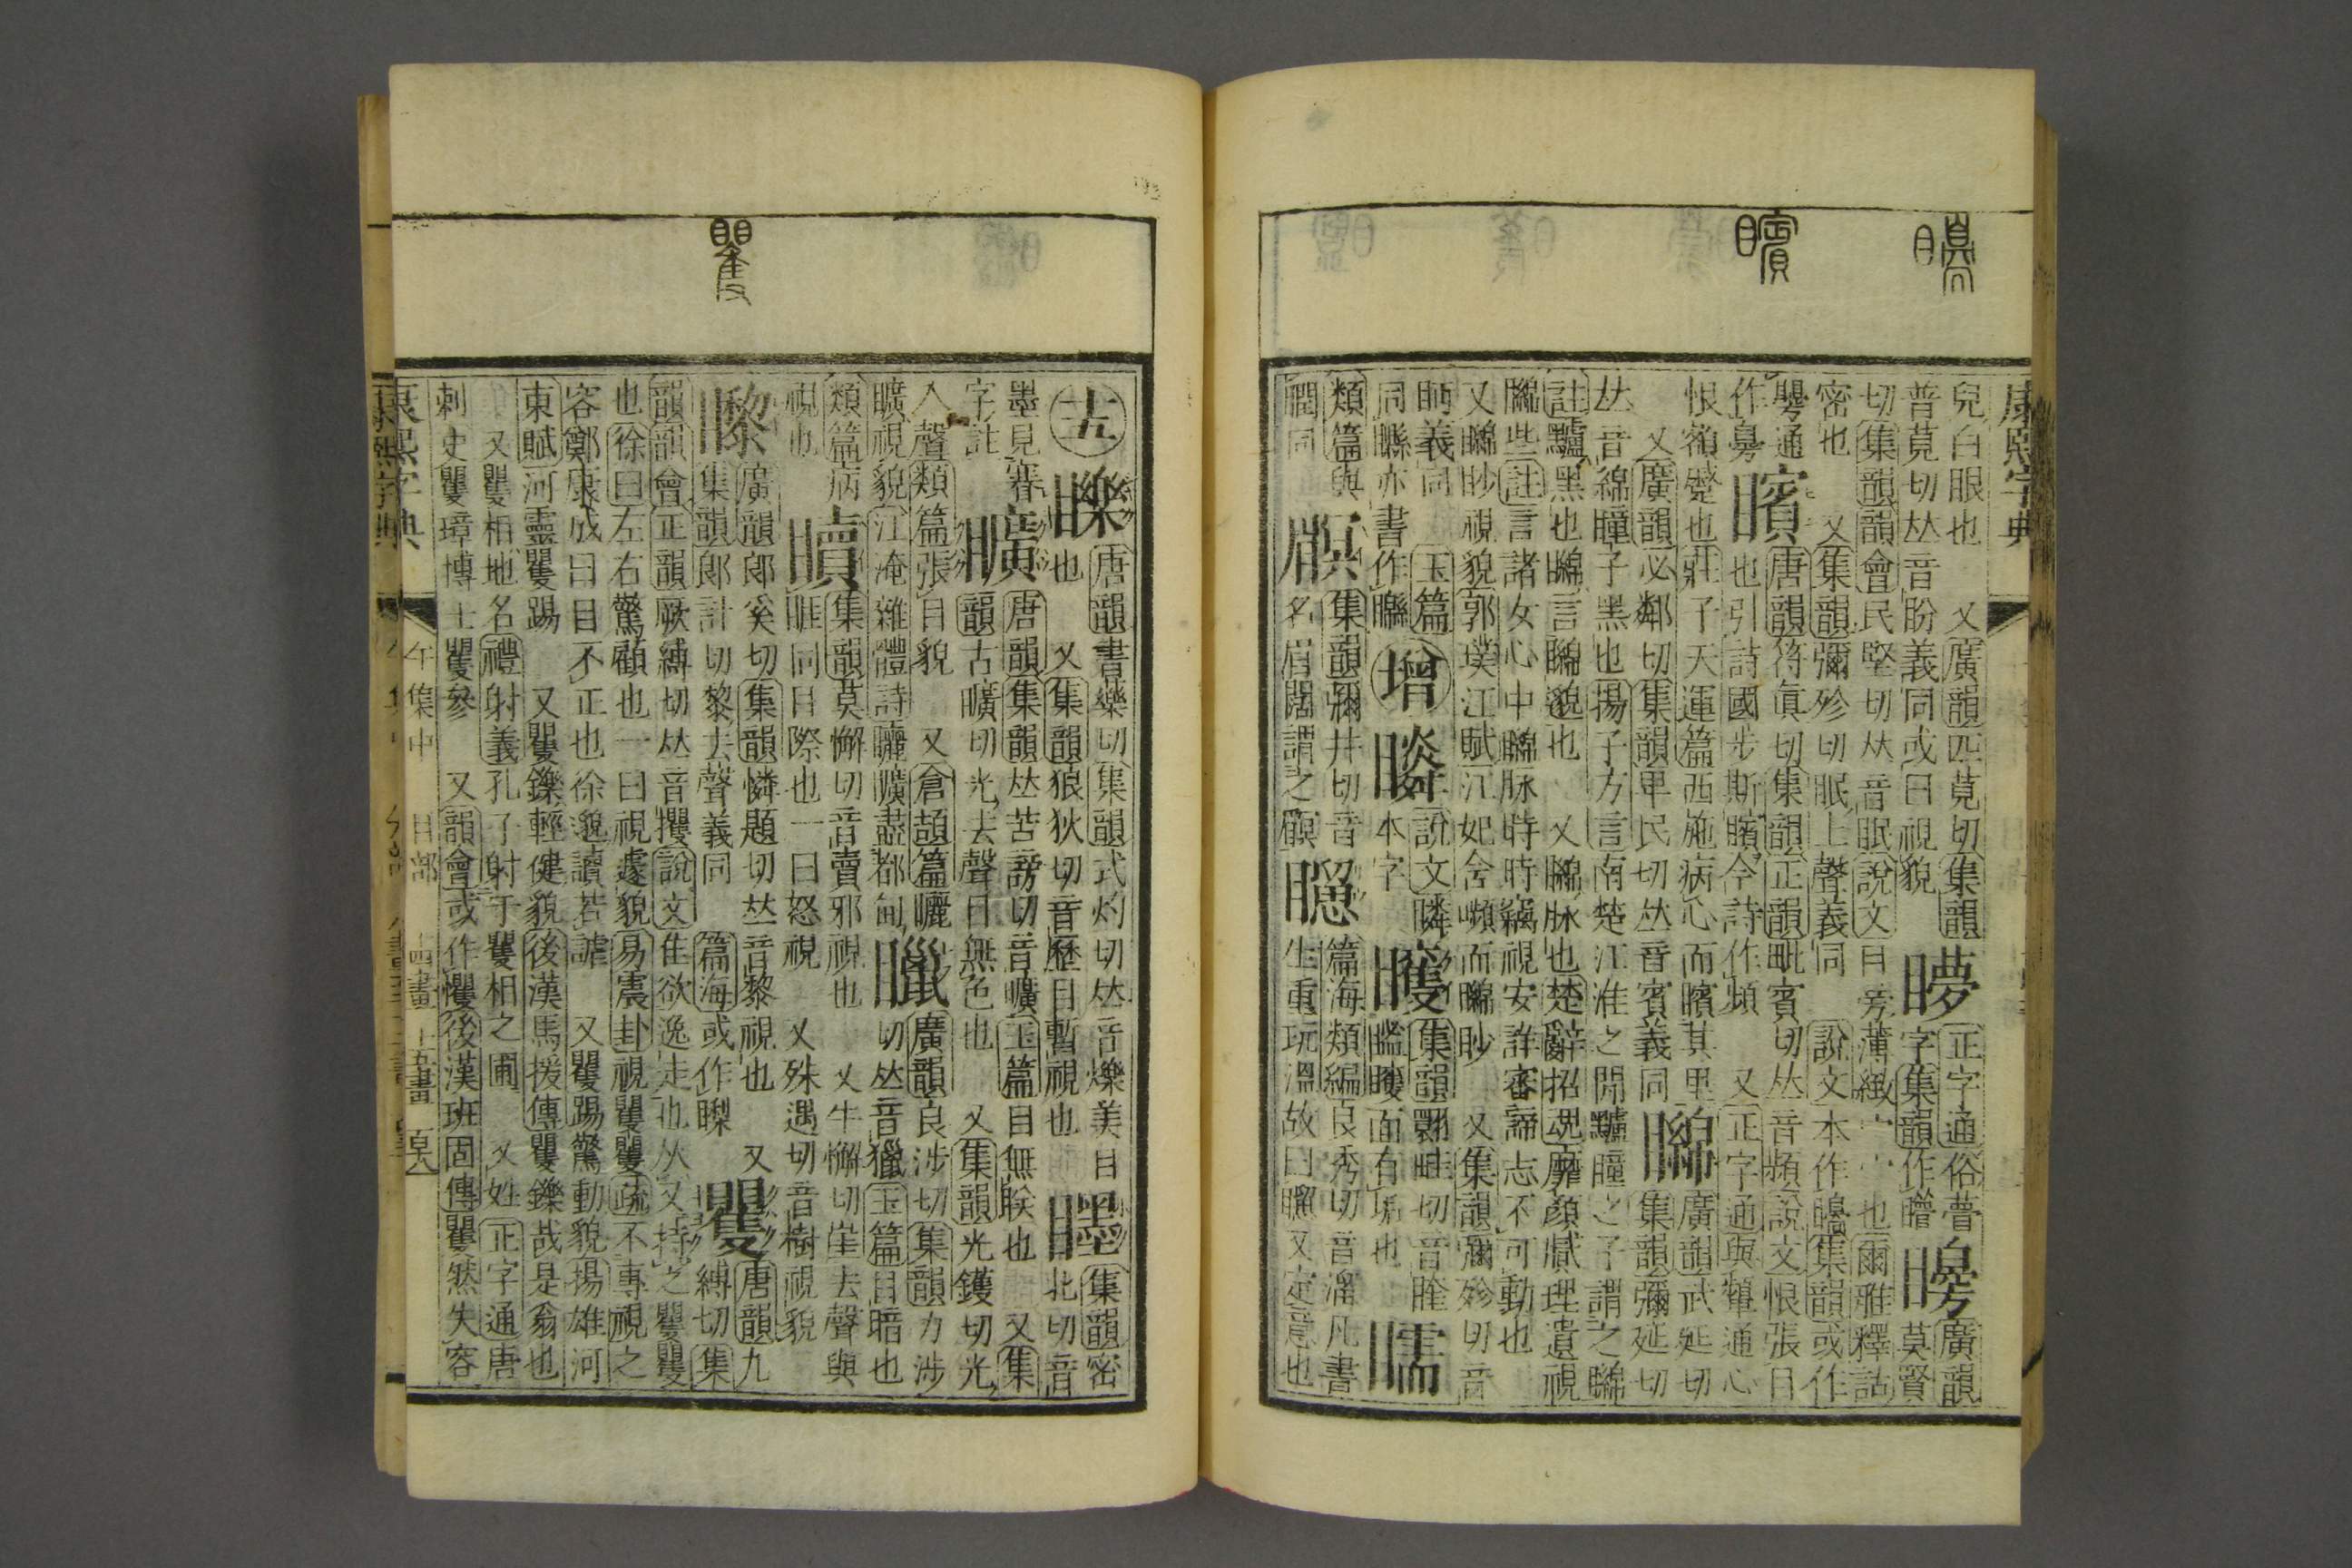 康熙字典
皃白眼也 又廣韻匹莧切集韻
普莧切𠀤音盼義同或曰視貌
正字通俗瞢
字集韻作
矏
廣韻
莫賢
切集韻韻會民堅切𠀤音眠說文曰旁薄緻宀宀也爾雅釋詁
密也 又集韻彌殄切眠上聲義同 說文本作集韻或作
通
作臱
矉
唐韻符眞切集韻正韻毗賓切𠀤音頻說文恨張目
也引詩國步斯矉今詩作頻 又正字通與顰通心
恨額蹙也莊子天運篇西施病心而矉其里
又廣韻必鄰切集韻𤰞民切𠀤音賓義同
矊
廣韻武延切
集韻彌延切
𠀤音綿瞳子黑也揚子方言南楚江淮之閒瞳之子謂之矊
註黑也矊言矊邈也 又矊脉也楚辭招魂靡顏膩理遺視
矊些註言諸女心中矊脉時時竊視安詳審諦志不可動也
又矊眇視貌郭璞江賦江妃含嚬而矊眇 又集韻彌殄切音
眄義同
玉篇
同亦書作
增
說文瞵
本字
集韻
面有也
類篇與
同
集韻彌井切音
名眉閒謂之
篇海類編良秀切音溜凡書
生重玩溫故曰又定意也
十五
矋
唐韻書藥切集韻式灼切𠀤音爍美目
也 又集韻狼狄切音歷目暫視也
集韻密
北切音
墨見睿
字註
矌
唐韻集韻𠀤苦謗切音曠玉篇目無眹也 又集
韻古曠切光去聲目無色也 又集韻光鑊切光
入聲類篇張目貌 又倉頡篇
矌視貌江淹雜體詩矖矌盡都甸
廣韻良涉切集韻力涉
切𠀤音獵玉篇目暗也
類篇病
視也
集韻莫懈切音賣邪視也 又牛懈切崖去聲與
睚同目際也一曰怒視 又殊遇切音樹視貌
廣韻郞奚切集韻憐題切𠀤音黎視也 又
集韻郞計切黎去聲義同 篇海或作
矍
唐韻九
縛切集
韻韻會正韻厥縛切𠀤音攫說文隹欲逸走也从又持之矍矍
也徐曰左右驚顧也一曰視遽貌易震卦視矍矍疏不專視之
容鄭康成曰目不正也徐邈讀若謔 又矍踢驚動貌揚雄河
東賦河靈矍踢 又矍鑠輕健貌後漢馬援傳矍鑠哉是翁也
又矍相地名禮射義孔子射于矍相之圃 又姓正字通唐
刺史矍璋博士矍參 又韻會或作戄後漢班固傳矍然失容
康熙字典
午集中 目部 十四畫 十五畫